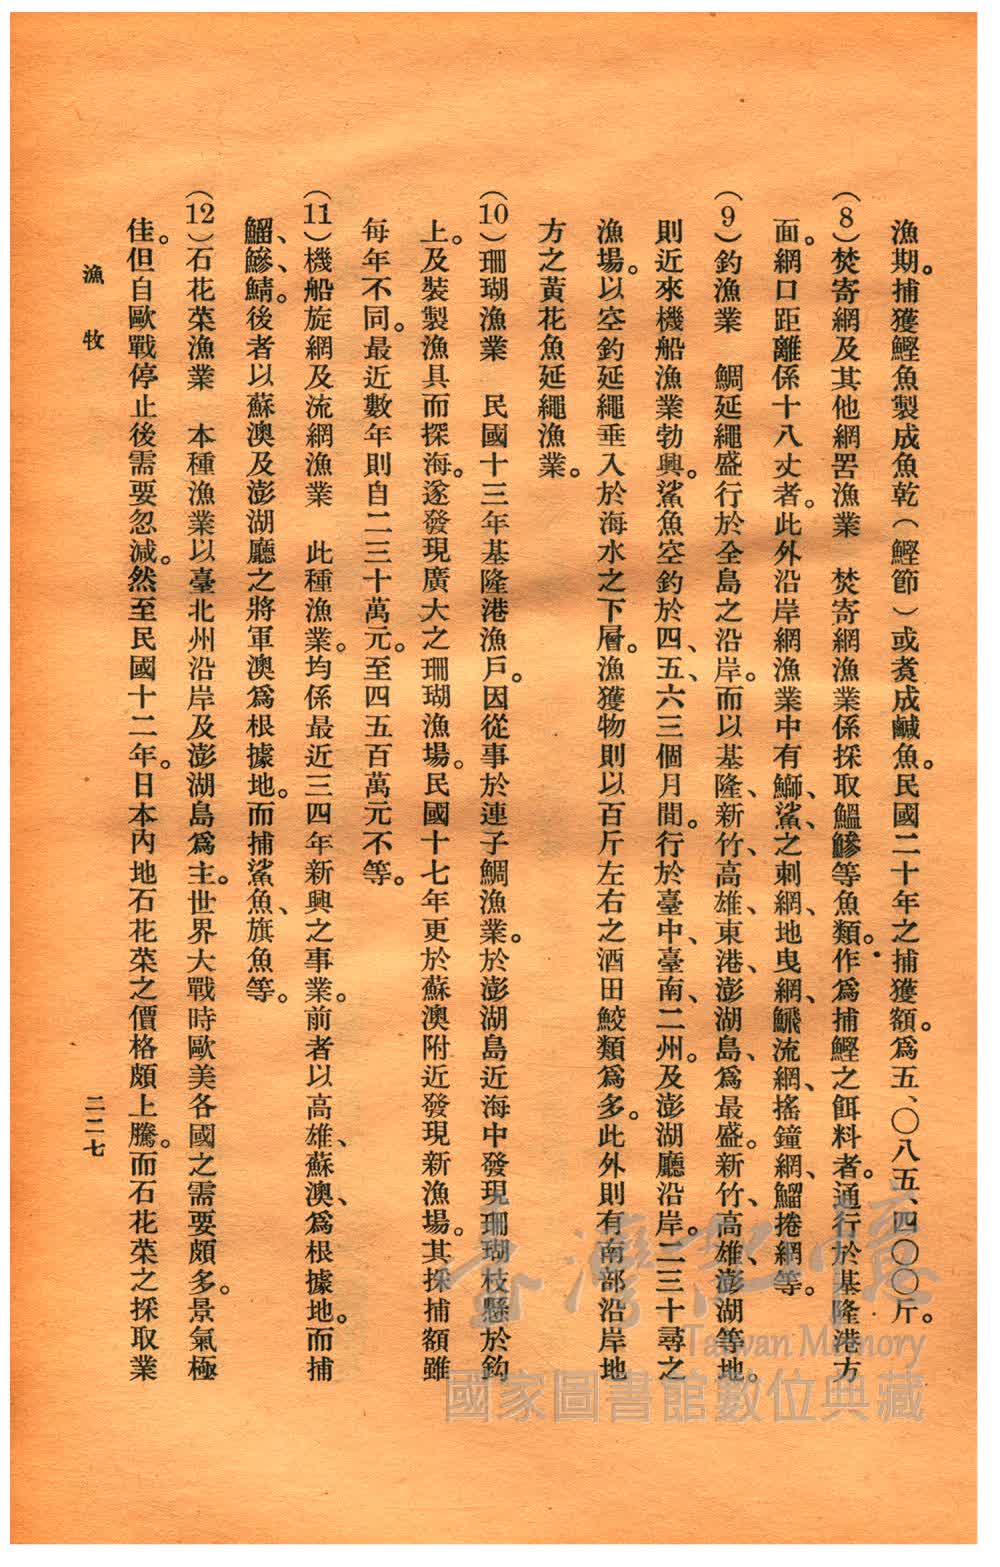 漁期。捕獲鰹魚製成魚乾（鰹節）或煑成鹹魚。民國二十年之捕獲額。爲五、〇八五、四〇〇斤。
（8）焚寄網及其他網罟漁業　焚寄網漁業係採取鰮鰺等魚類。作爲捕鰹之餌料者。通行於基隆港方
面。網口距離係十八丈者。此外沿岸網漁業中有鰤、鯊之刺網、地曳網、鱵流網、搖鐘網、鰡捲網等。
（9）釣漁業　鯛延繩盛行於全島之沿岸。而以基隆、新竹、高雄、東港、澎湖島、爲最盛。新竹、高雄、澎湖等地。
則近來機船漁業勃興。鯊魚空釣於四、五、六三個月間。行於臺中、臺南、二州。及澎湖廳沿岸。二三十尋之
漁場。以空釣延繩垂入於海水之下層。漁獲物則以百斤左右之酒田鮫類爲多。此外則有南部沿岸地
方之黃花魚延繩漁業。
（10）珊瑚漁業　民國十三年基隆港漁戶。因從事於連子鯛漁業。於澎湖島近海中發現珊瑚枝懸於鈎
上。及裝製漁具而探海。遂發現廣大之珊瑚漁場。民國十七年更於蘇澳附近發現新漁場。其採捕額雖
每年不同。最近數年則自二三十萬元。至四五百萬元不等。
（11）機船旋網及流網漁業　此種漁業。均係最近三四年新興之事業。前者以高雄、蘇澳、爲根據地。而捕
鰡、鰺、鯖。後者以蘇澳及澎湖廳之將軍澳爲根據地。而捕鯊魚、旗魚等。
（12）石花菜漁業　本種漁業以臺北州沿岸及澎湖島爲主。世界大戰時歐美各國之需要頗多。景氣極
佳。但自歐戰停止後需要忽減。然至民國十二年。日本內地石花菜之價格頗上騰。而石花菜之採取業
漁　牧
二二七
臺灣記憶
Taiwan Memory
國家圖書館數位典藏